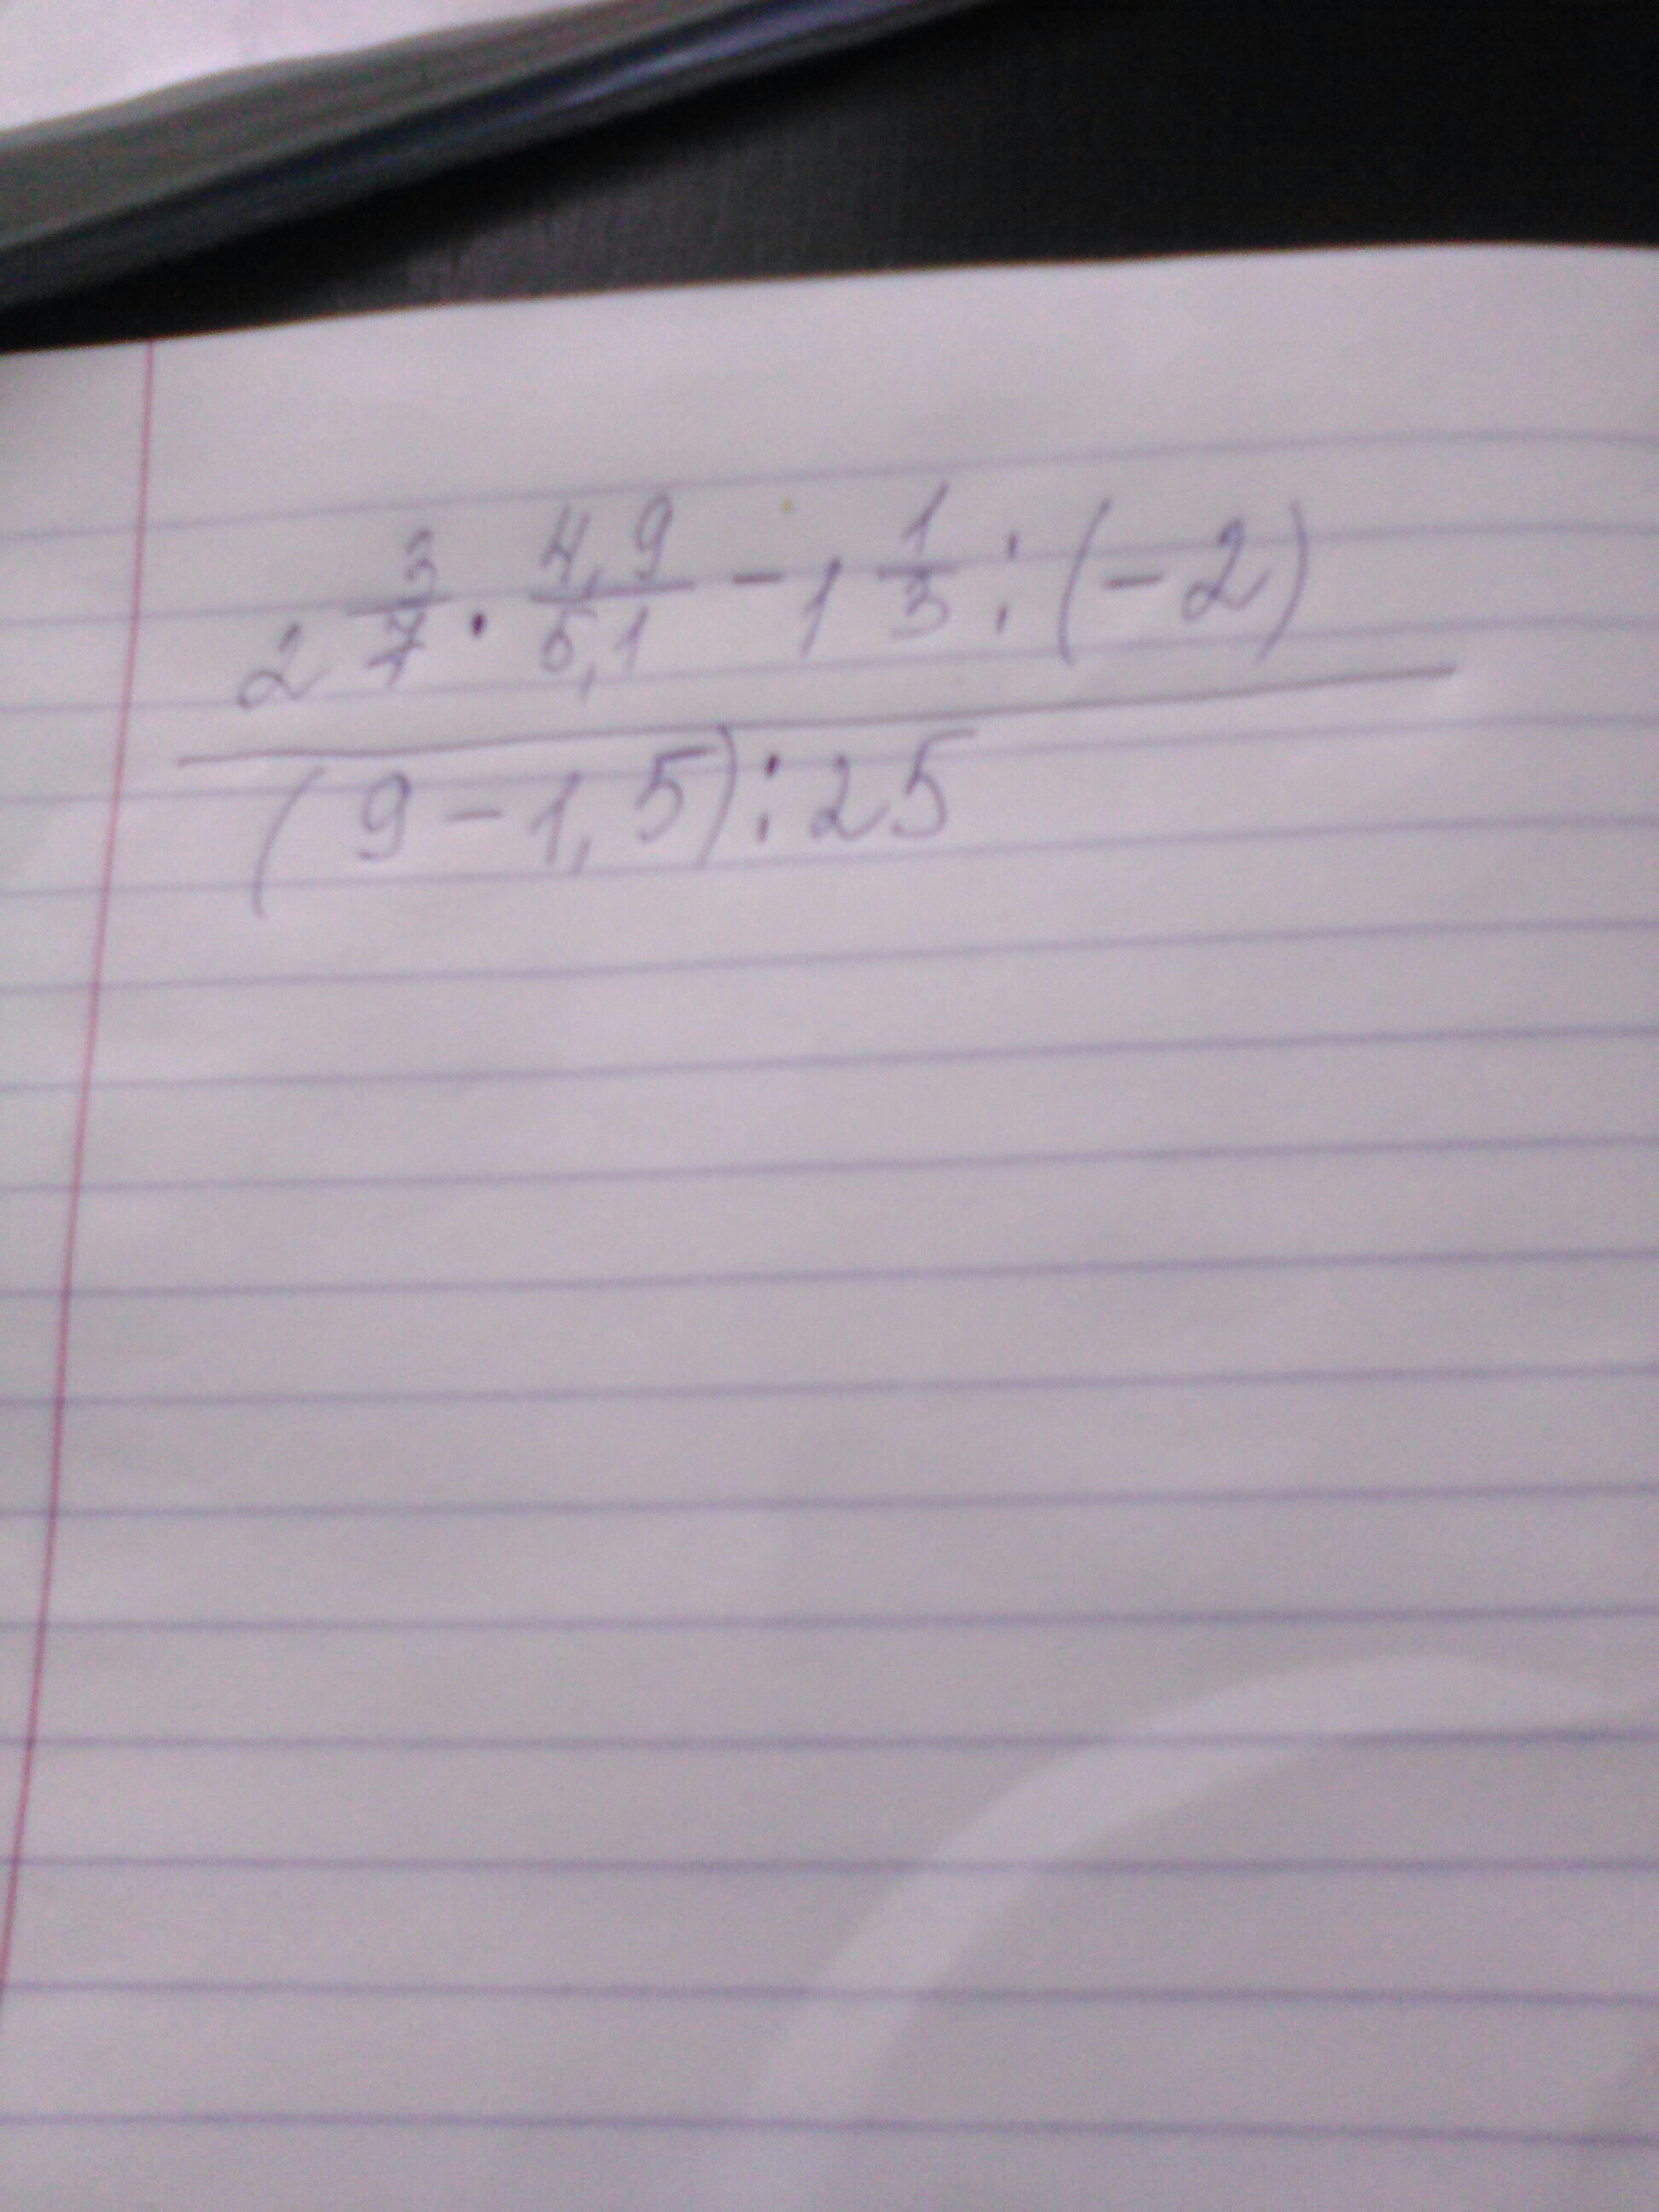 2 3/7 · 4,9/5,1 - 1 1/3 : (-2)
(9 - 1,5) : 25